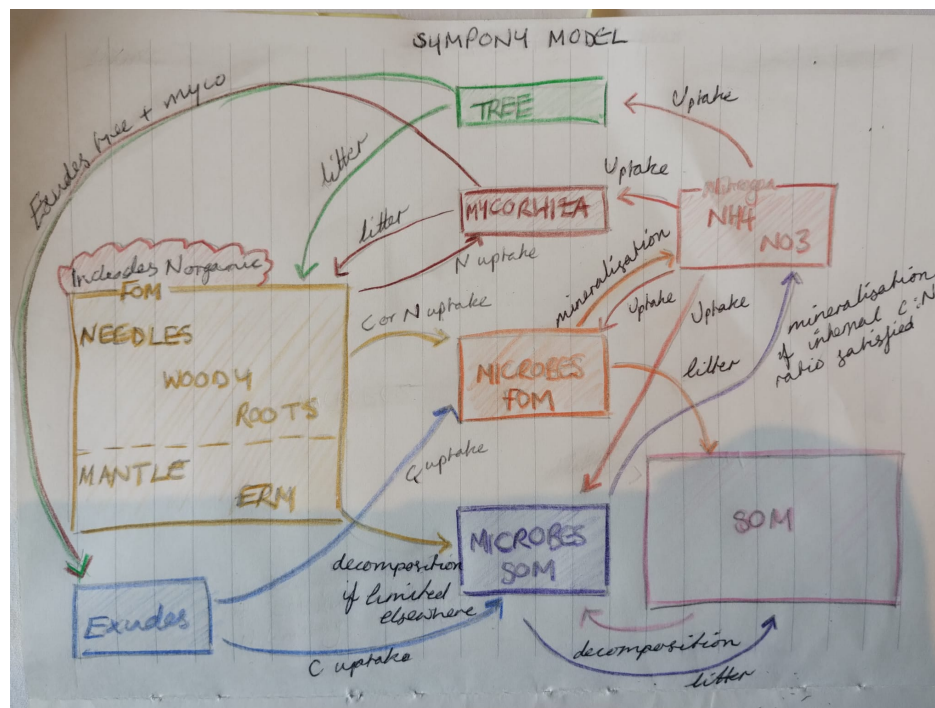 SYMPONY MODEL
Exudes tree + myco
TREE
Uptake
litter
Uptake
Nitrogen
NH4
NO3
MYCORHIZA
litter
N uptake
Includes Norganic
FOM
NEEDLES
WOODY
ROOTS
MANTLE
ERM
C or N uptake
mineralisation
Uptake
Uptake
mineralisation
if internal C:N
ratio satisfied
MICROBES
FOM
litter
C uptake
SOM
MICROBES
SOM
decomposition
if limited
elsewhere
Exudes
C uptake
decomposition
litter